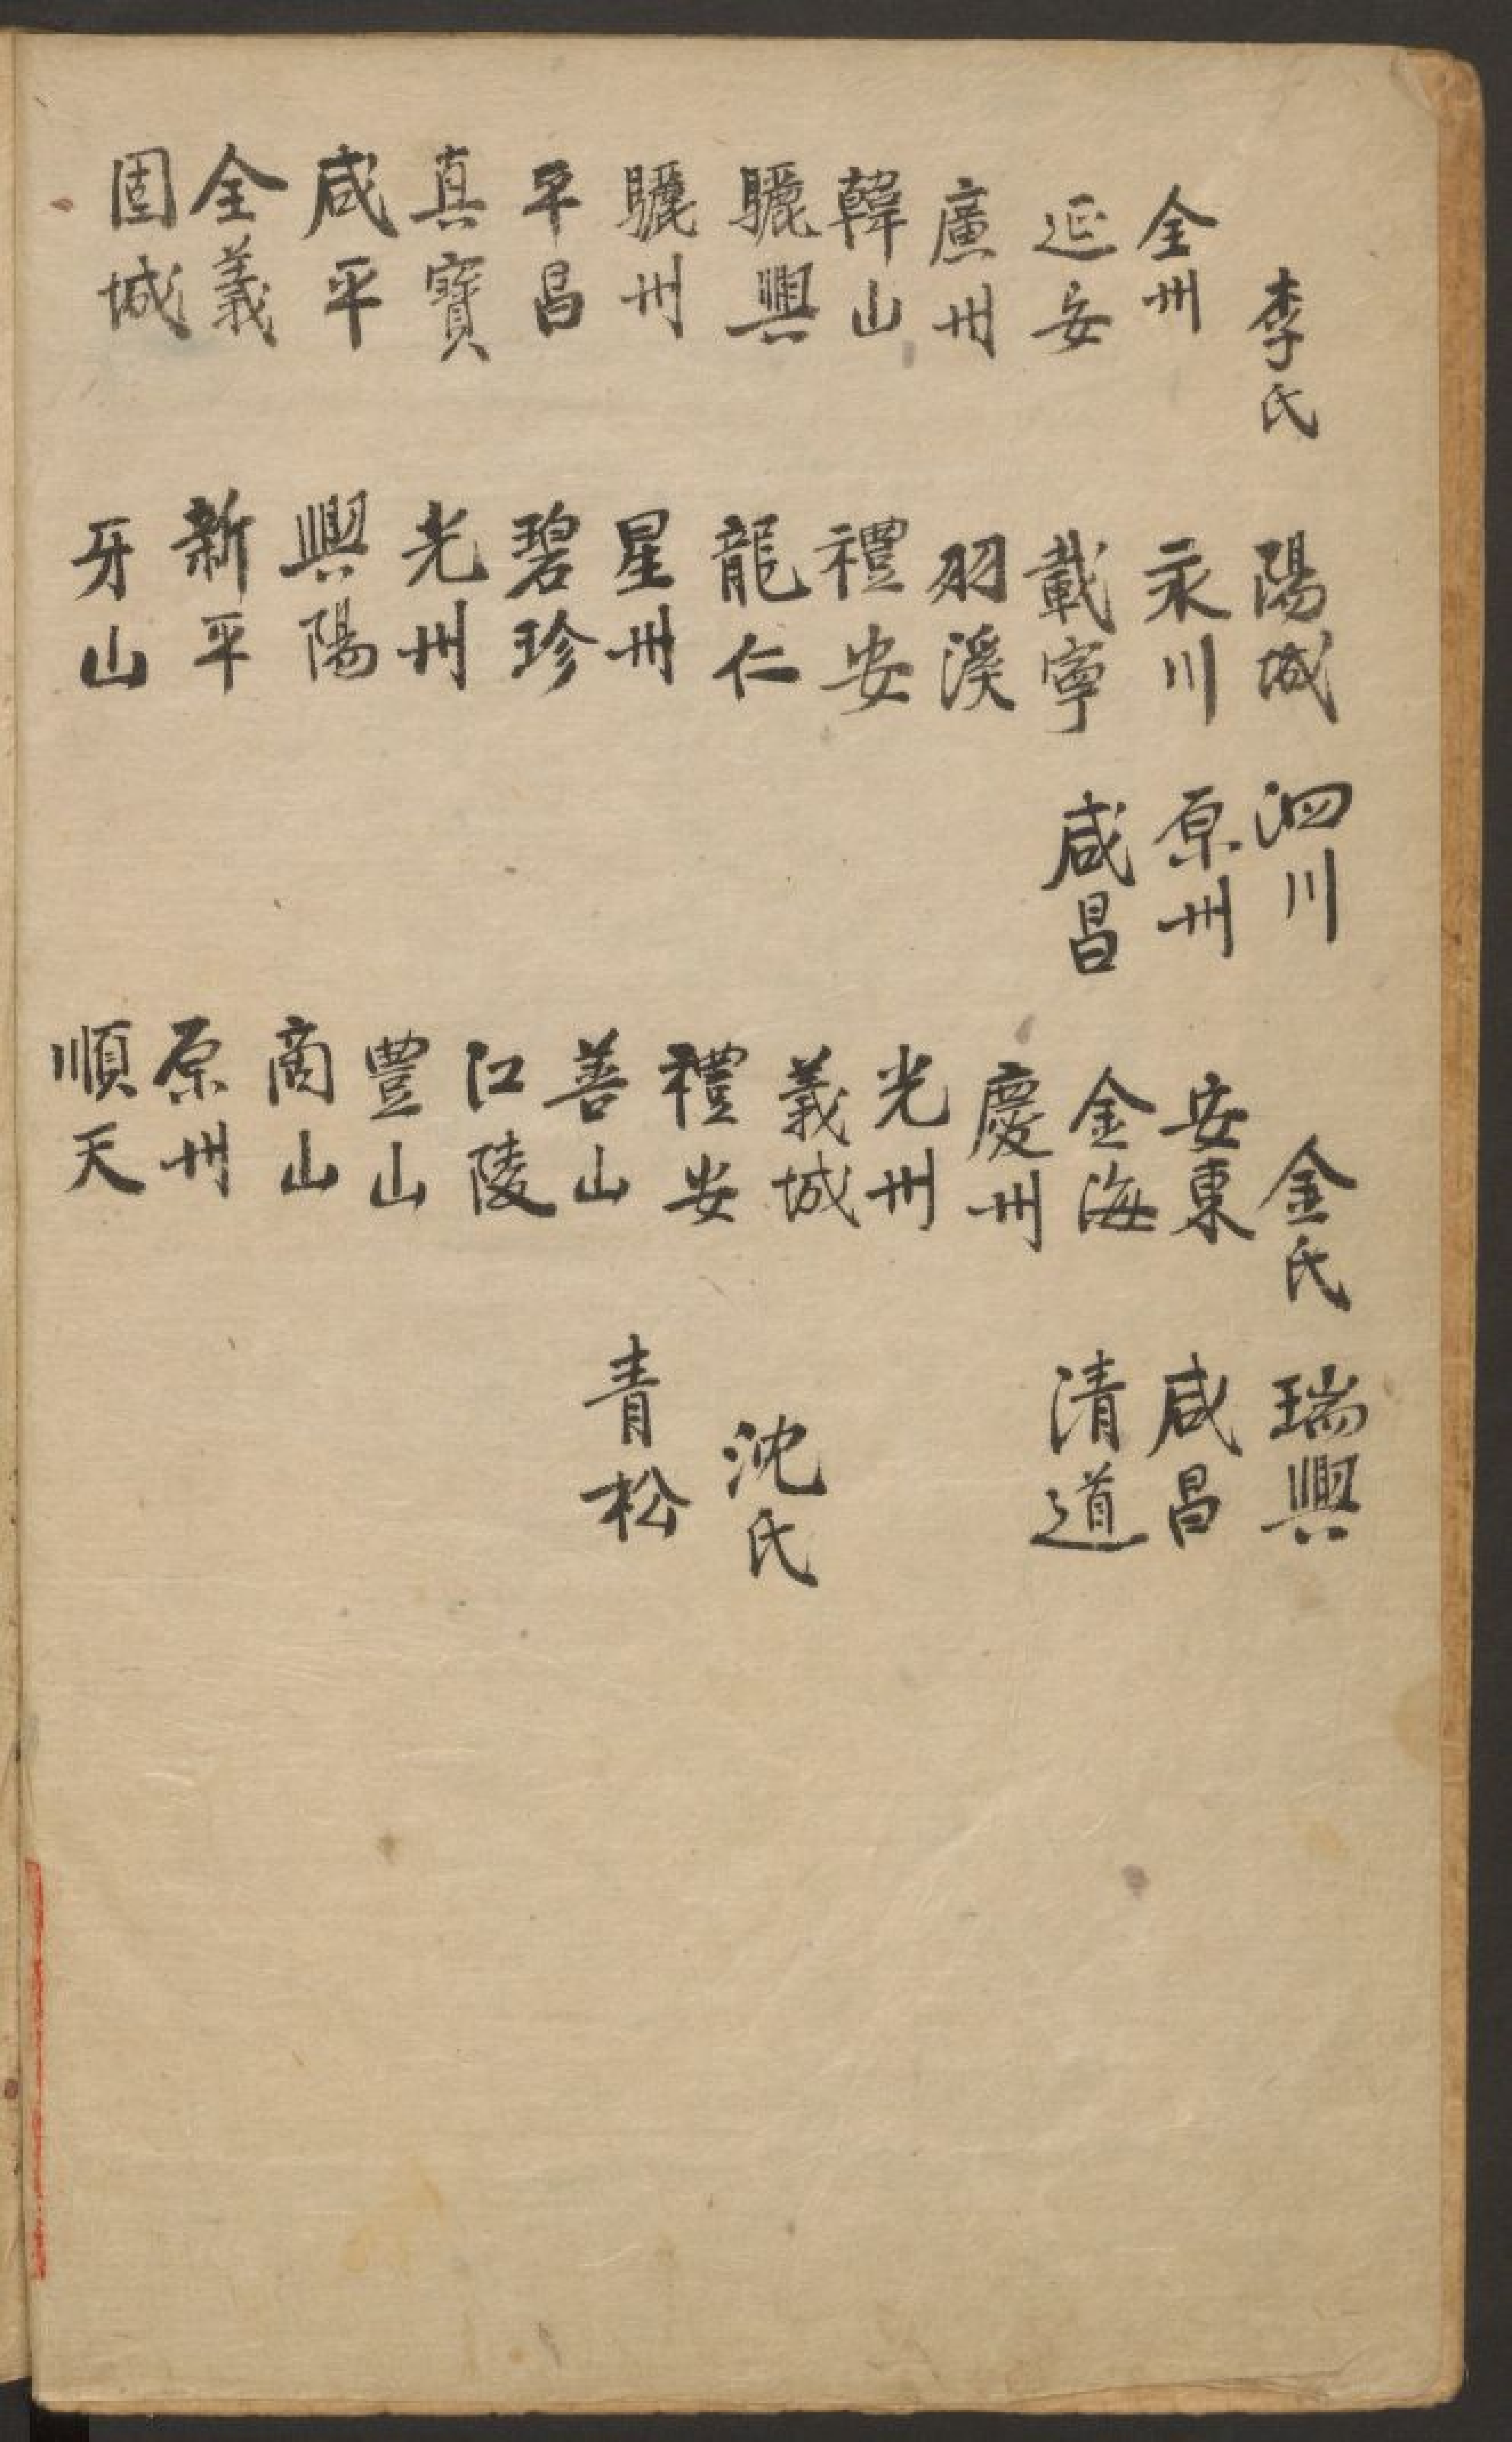 李氏
全州
延安
廣州
韓山
驪興
驪州
平昌
真寶
咸平
全義
固城
陽城
永川
載寧
羽溪
禮安
龍仁
星州
碧珍
光州
興陽
新平
牙山
泗川
原州
咸昌
金氏
安東
金海
慶州
光州
義城
禮安
善山
江陵
豊山
商山
原州
順天
瑞興
咸昌
清道
沈氏
青松